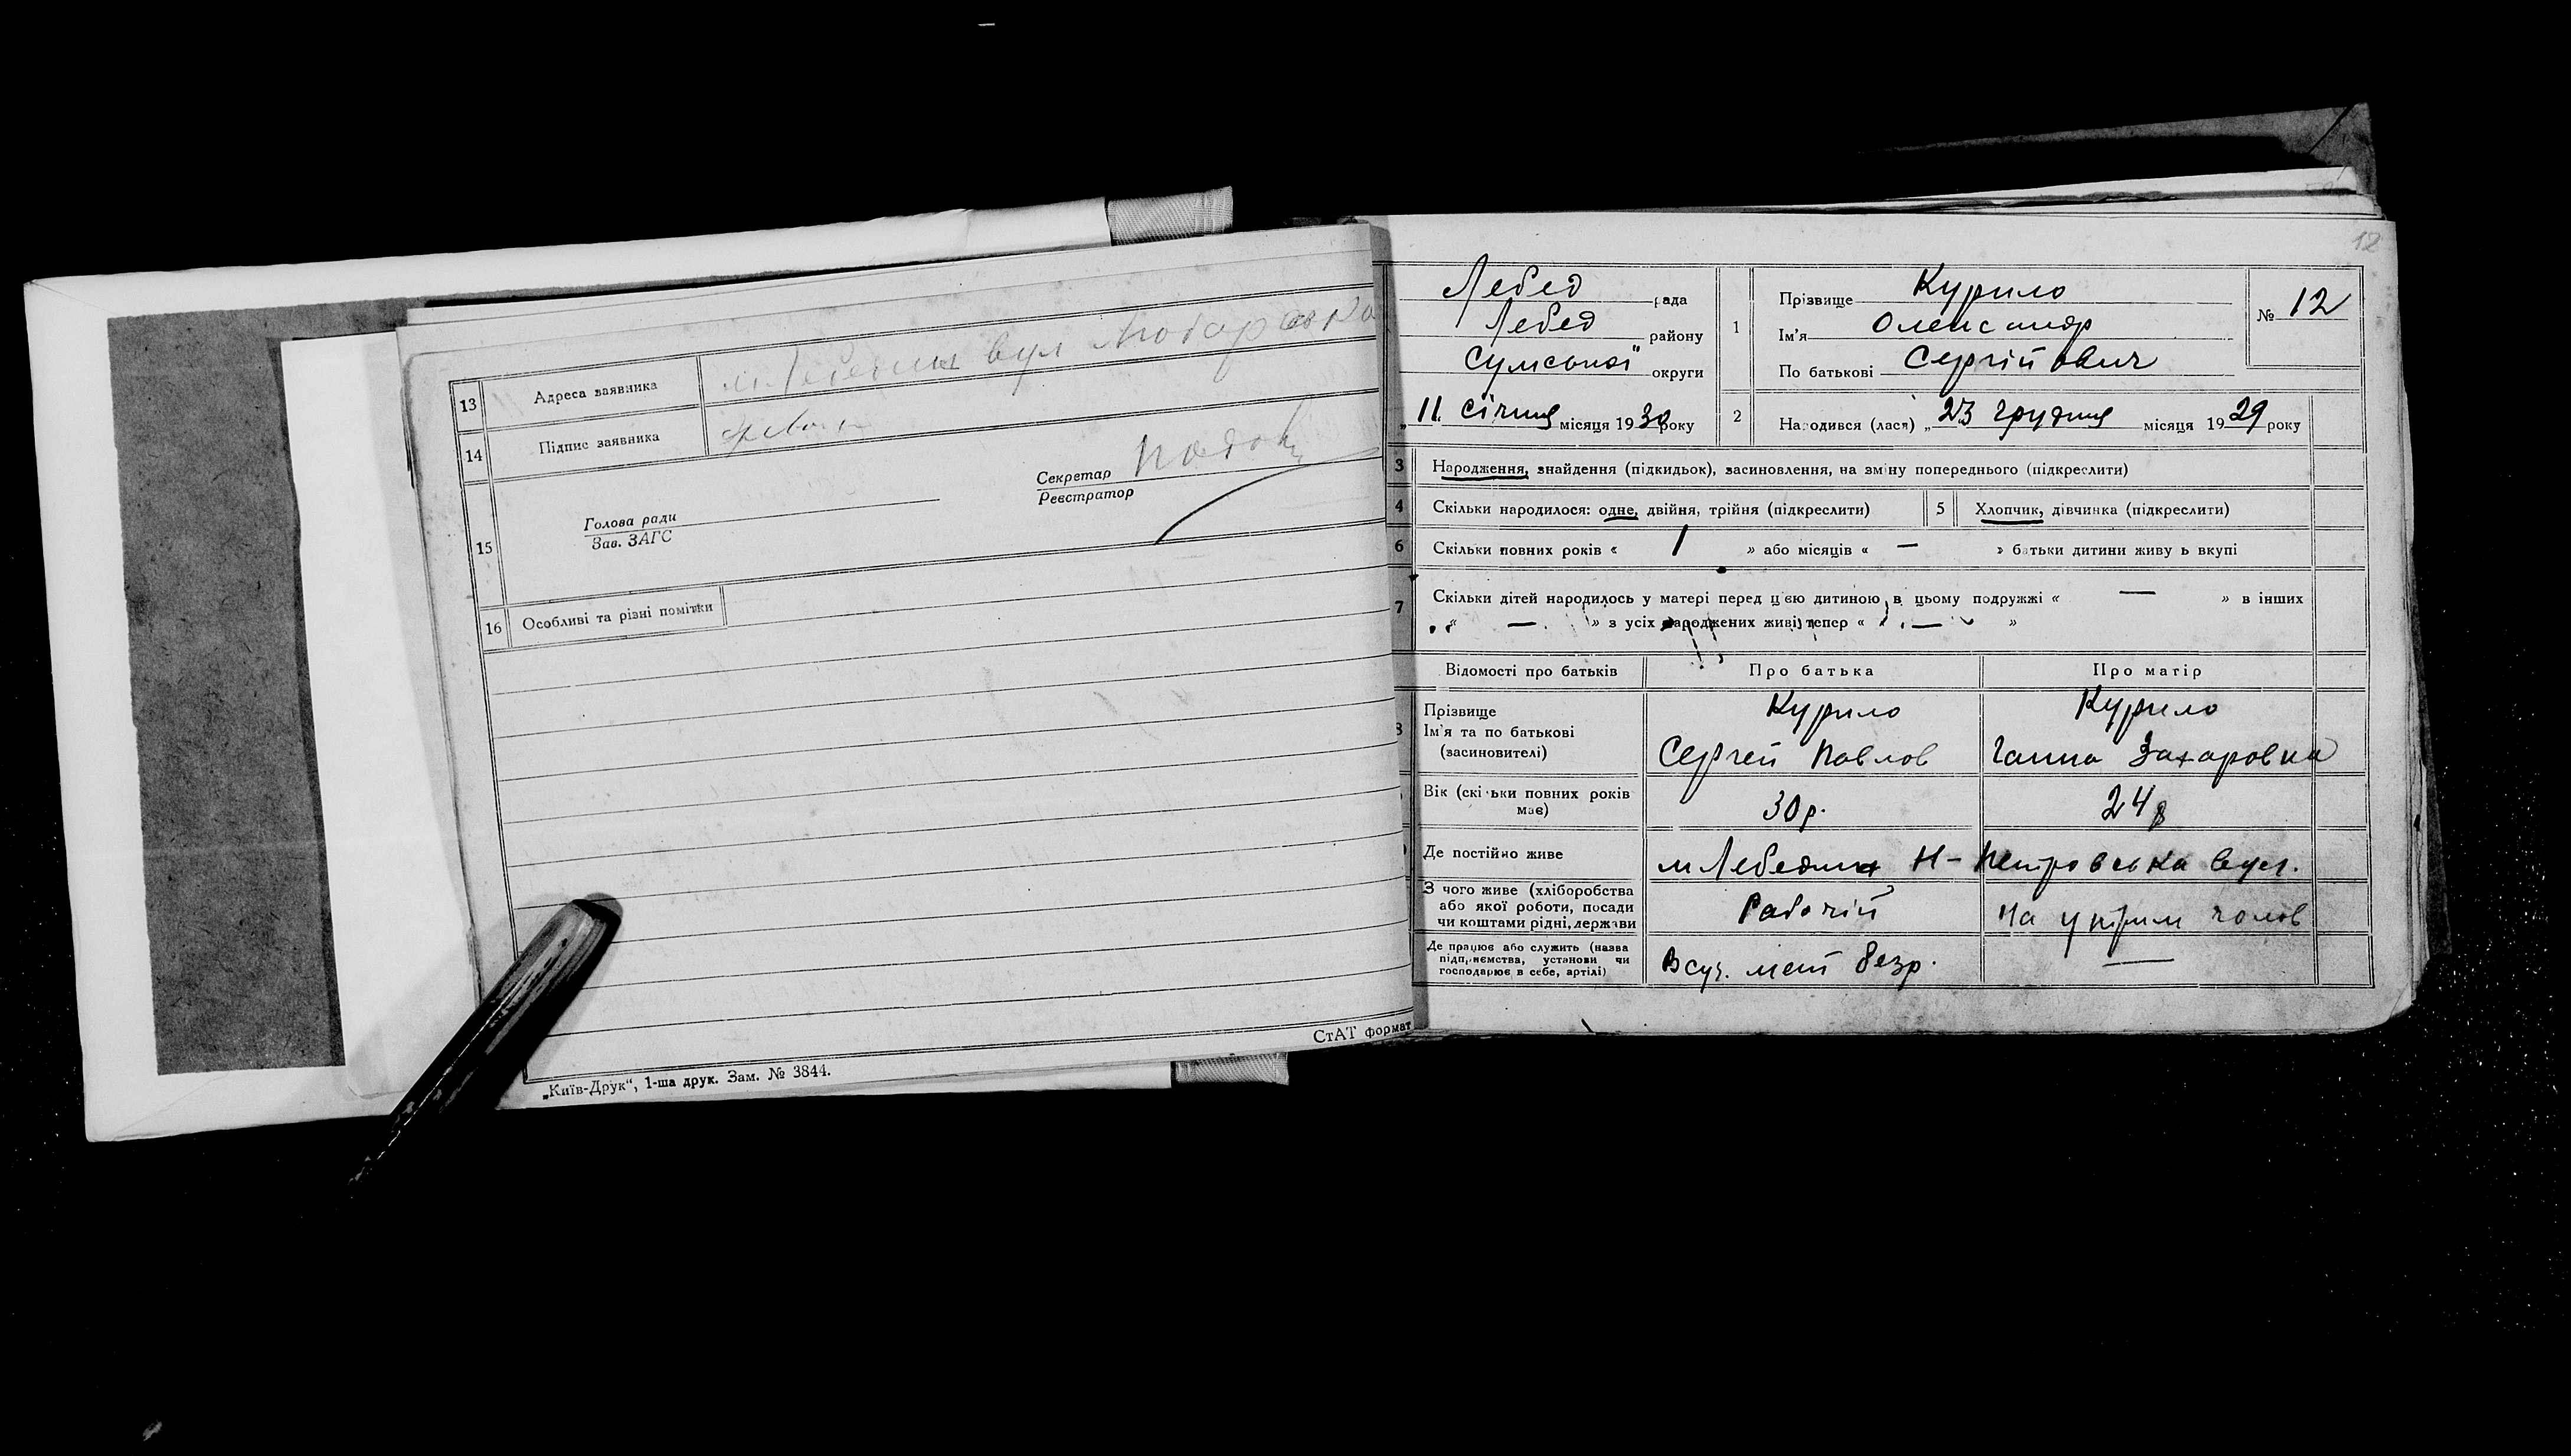 13 Адреса заявника м. Лебедин вул
14 Підпис заявника
15 Голова ради
Зав. ЗАГС
Секретар
Реєстратор
16 Особливі та різні помітки
СтАТ формат
„Київ-Друк“, 1-ша друк. Зам. № 3844.
12
Лебед рада
Лебед району
Сумської округи
„11 січня місяця 1930 року
1 Прізвище Курило
Ім'я Олександр
По батькові Сергійович
№ 12
2 Народився (лася) „23 грудня місяця 1929 року
3 Народження, знайдення (підкидьок), засиновлення, на зміну попереднього (підкреслити)
4 Скільки народилося: одне, двійня, трійня (підкреслити) 5 Хлопчик, дівчинка (підкреслити)
6 Скільки повних років « 1 » або місяців « — » батьки дитини живу ь вкупі
7 Скільки дітей народилось у матері перед цією дитиною в цьому подружжі « — » в інших
« — » з усіх народжених живі тепер « — »
Відомості про батьків Про батька Про матір
8 Прізвище Курило Курило
Ім'я та по батькові
(засиновителі) Сергей Павлов Ганна Захаровна
Вік (скільки повних років
має) 30 р. 24 р
Де постійно живе м Лебедин Н-Петровська вул.
З чого живе (хліборобства
або якої роботи, посади
чи коштами рідні, держави Рабочій На утрим чолов
Де працює або служить (назва
підприємства, установи чи
господарює в себе, артілі) безр. —